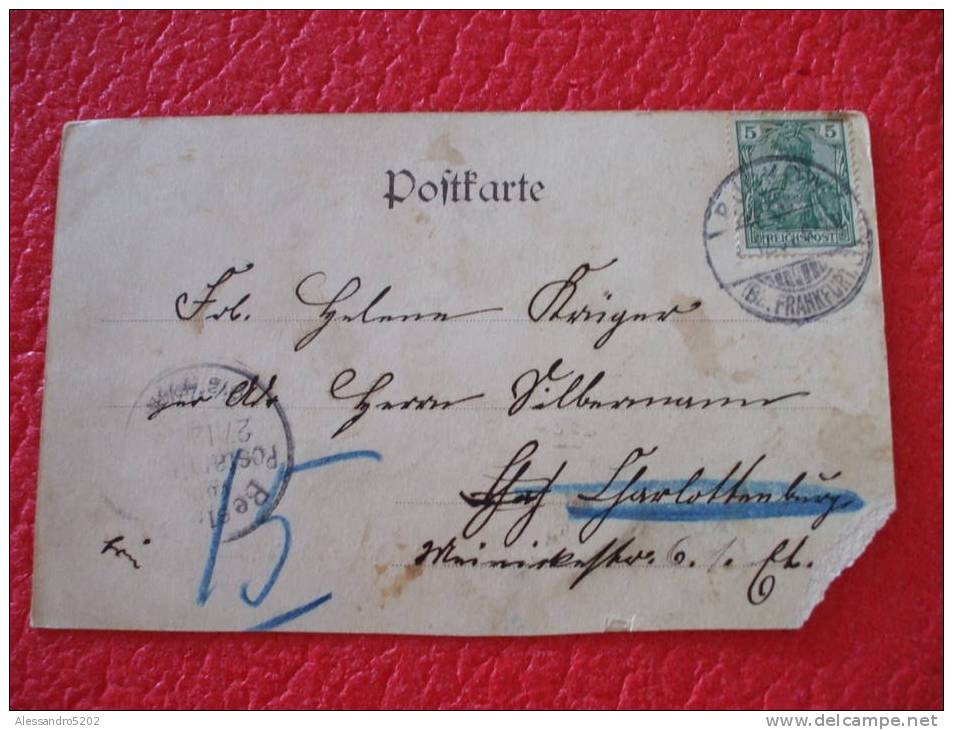 Postkarte
5 5
REICHSPOST
(BZ. FRANKFURT
Frl. Helene Krüger
per Adr. Herrn Silbermann
Charlottenburg
Meinickestr. 6. 1. Et.
Best
Postamt
27.12
15
frei
Alessandro5202
www.delcampe.net